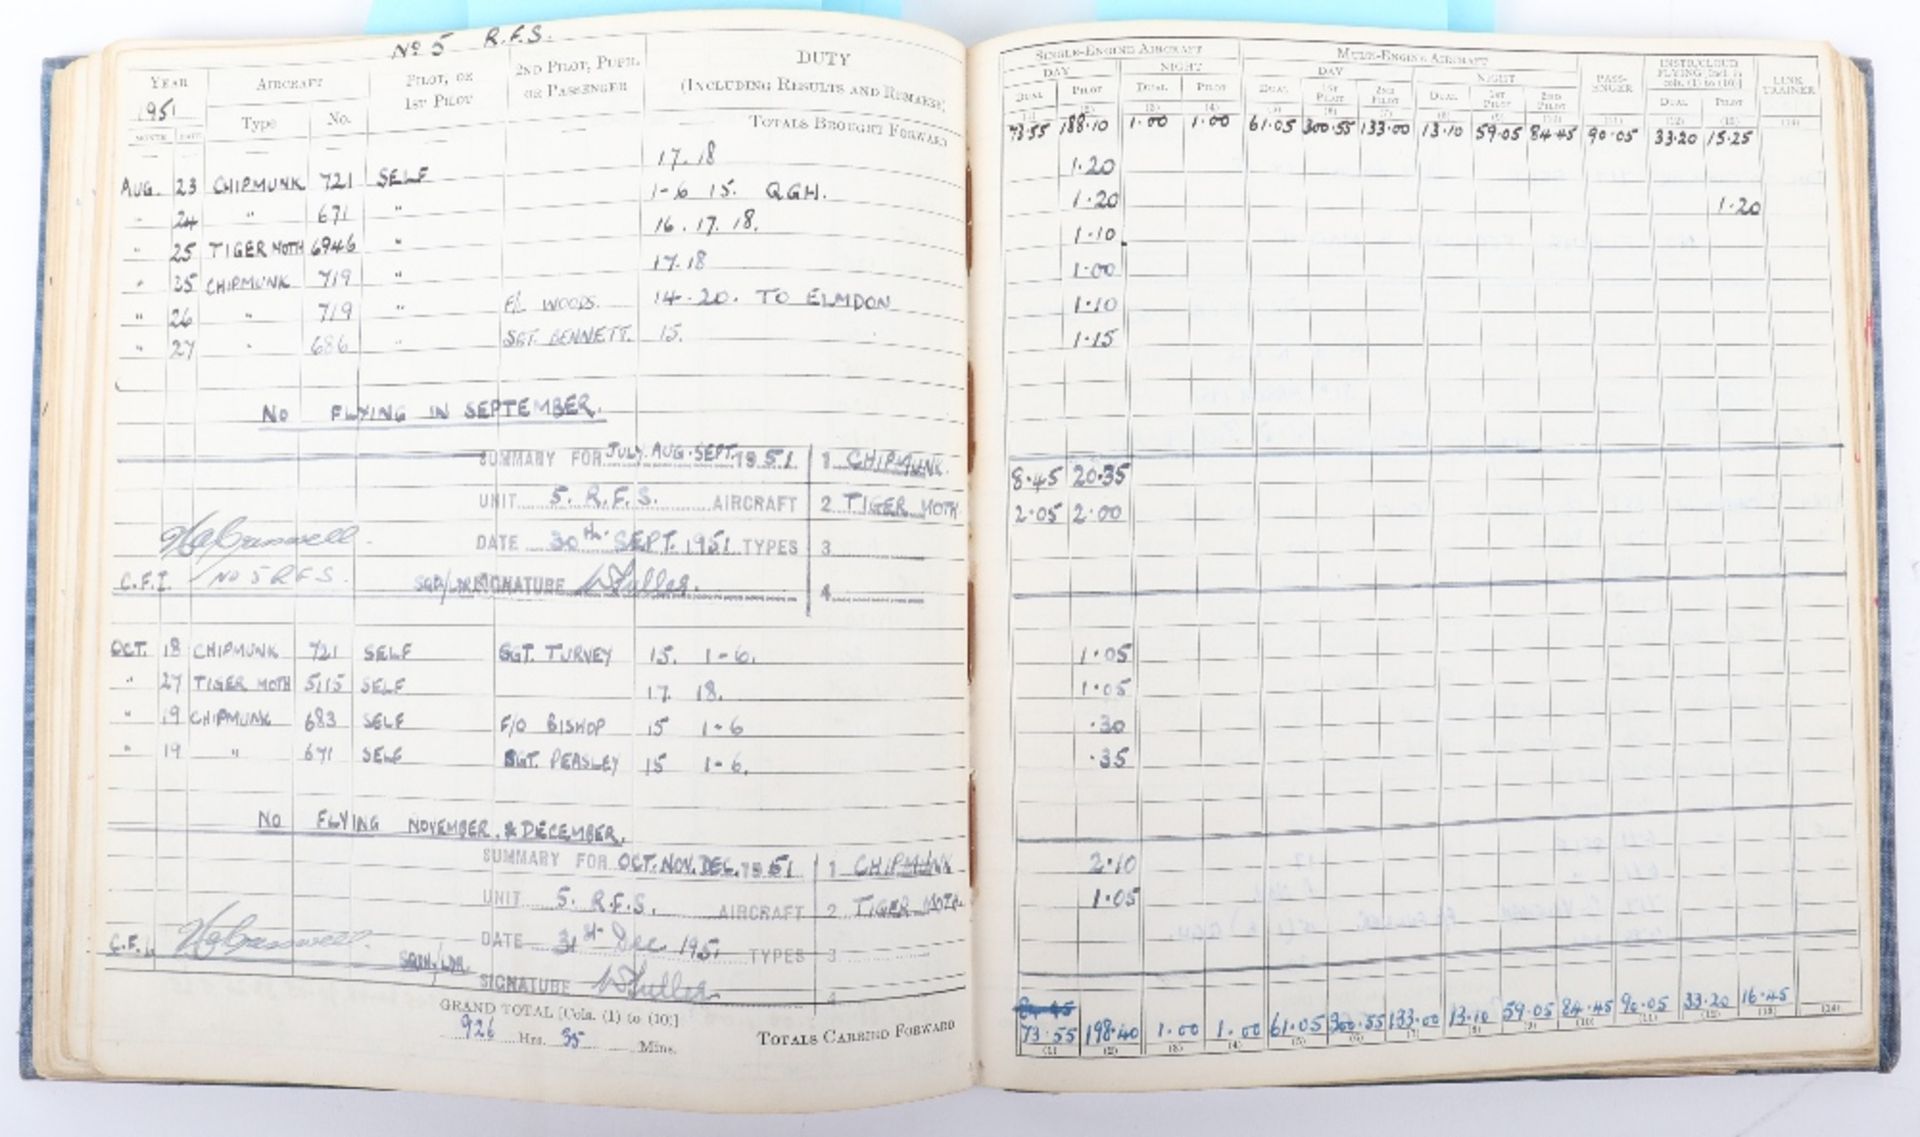 No 5 R.F.S.
YEAR AIRCRAFT PILOT, OR 1ST PILOT 2ND PILOT, PUPIL OR PASSENGER DUTY (INCLUDING RESULTS AND REMARKS)
1951
MONTH DATE Type No.
TOTALS BROUGHT FORWARD
AUG. 23 CHIPMUNK 721 SELF 17.18
" 24 " 671 " 1-6 15. QGH.
" 25 TIGER MOTH 6946 " 16.17.18.
" 25 CHIPMUNK 719 " 17.18
" 26 " 719 " F/L WOODS. 14.20. TO ELMDON
" 27 " 686 " SGT. BENNETT. 15.
NO FLYING IN SEPTEMBER.
SUMMARY FOR JULY. AUG. SEPT. 1951 1 CHIPMUNK.
UNIT 5. R.F.S. AIRCRAFT 2 TIGER MOTH
DATE 30th SEPT. 1951 TYPES 3
C.F.I. No 5 R.F.S. SQD/LDR SIGNATURE 4
OCT. 18 CHIPMUNK 721 SELF SGT. TURVEY 15. 1-6.
" 27 TIGER MOTH 5115 SELF 17. 18.
" 19 CHIPMUNK 683 SELF F/O BISHOP 15 1-6
" 19 " 671 SELF SGT. PEASLEY 15 1-6.
NO FLYING NOVEMBER. & DECEMBER.
SUMMARY FOR OCT. NOV. DEC. 1951 1 CHIPMUNK
UNIT 5. R.F.S. AIRCRAFT 2 TIGER MOTH
DATE 31st Dec 1951 TYPES 3
C.F.I. SQDN/LDR. SIGNATURE 4
GRAND TOTAL [Cols. (1) to (10)]
926 Hrs. 35 Mins.
TOTALS CARRIED FORWARD
SINGLE-ENGINE AIRCRAFT MULTI-ENGINE AIRCRAFT PASSENGER INSTR/CLOUD FLYING [Incl. in cols. (1) to (10)] LINK TRAINER
DAY NIGHT DAY NIGHT
DUAL PILOT DUAL PILOT DUAL 1ST PILOT 2ND PILOT DUAL 1ST PILOT 2ND PILOT DUAL PILOT
(1) (2) (3) (4) (5) (6) (7) (8) (9) (10) (11) (12) (13) (14)
73.55 188.10 1.00 1.00 61.05 300.55 133.00 13.10 59.05 84.45 90.05 33.20 15.25
1.20
1.20 1.20
1.10
1.00
1.10
1.15
8.45 20.35
2.05 2.00
1.05
1.05
.30
.35
2.10
1.05
73.55 198.40 1.00 1.00 61.05 300.55 133.00 13.10 59.05 84.45 90.05 33.20 16.45
(1) (2) (3) (4) (5) (6) (7) (8) (9) (10) (11) (12) (13) (14)